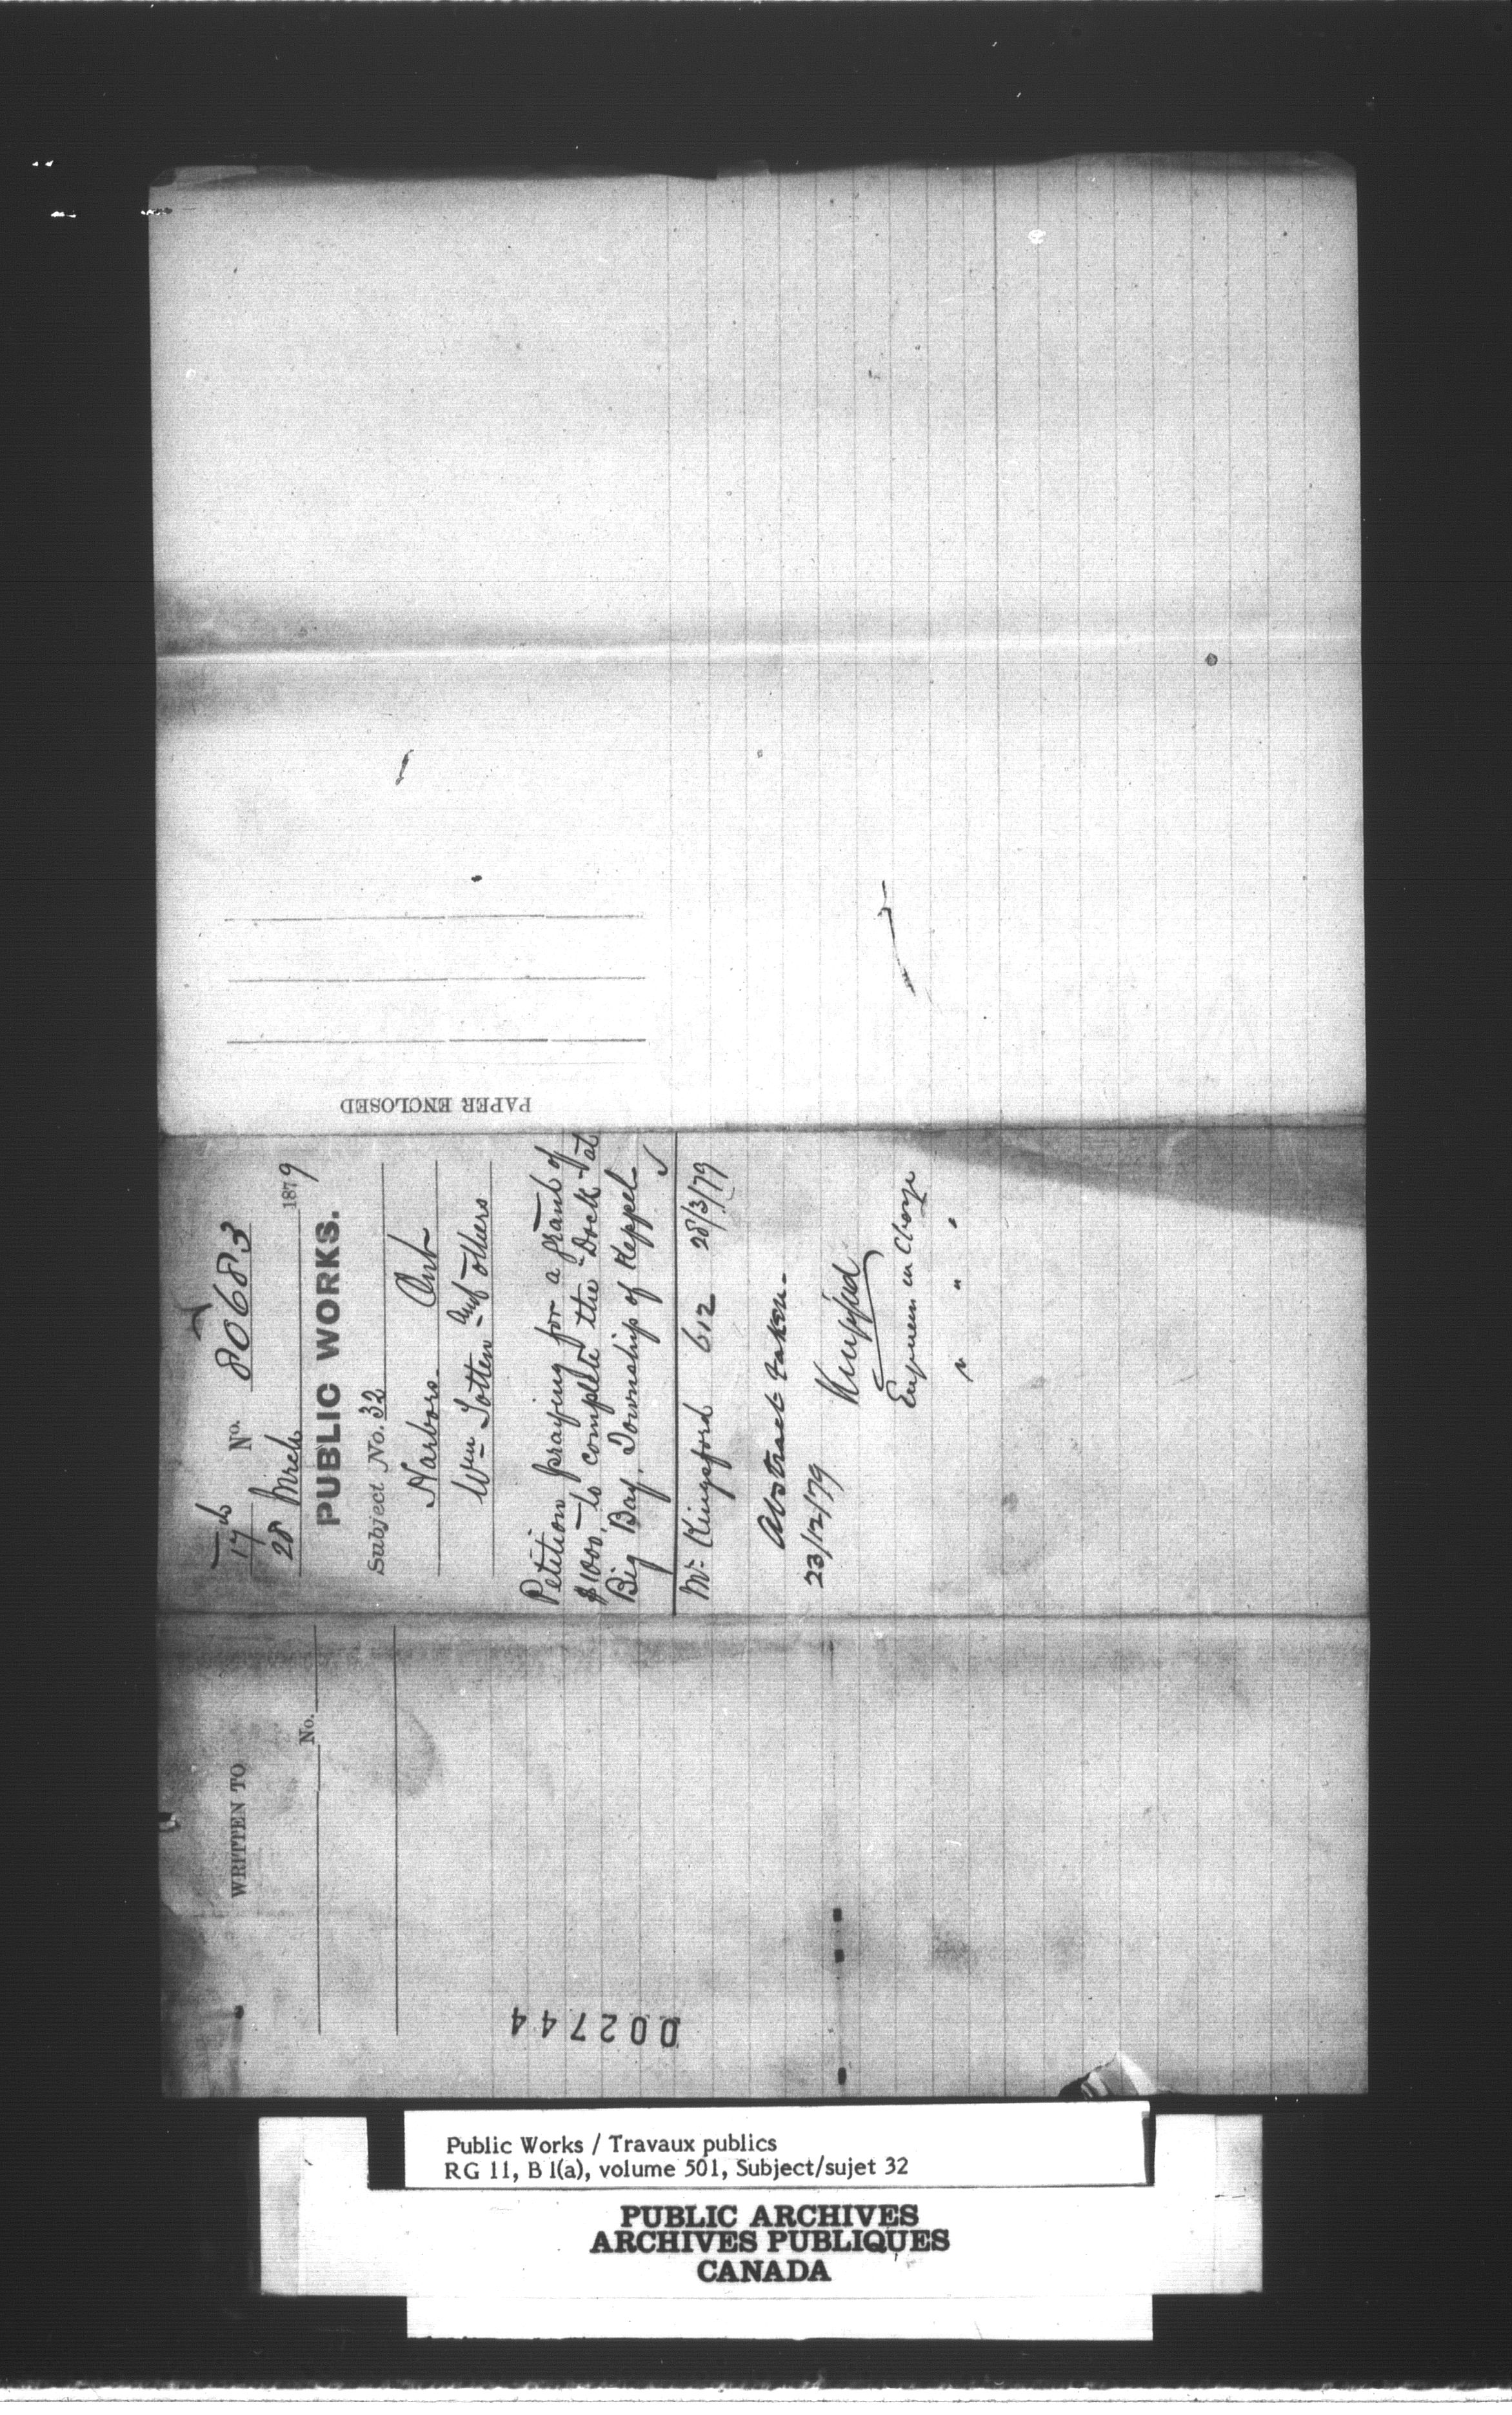 PAPER ENCLOSED
17
No. 80683
28 March 1879
PUBLIC WORKS.
Subject No. 32
Harbors Ont
Wm Totten and others
Petition praying for a grant of
$1000, to complete the Dock at
Big Bay, Township of Keppel
Mr. Kingsford 612 28/3/79
Abstract taken.
23/12/79
Kingsford
Engineer in Charge
" " "
WRITTEN TO
No.
002744
Public Works / Travaux publics
RG 11, B 1(a), volume 501, Subject/sujet 32
PUBLIC ARCHIVES
ARCHIVES PUBLIQUES
CANADA